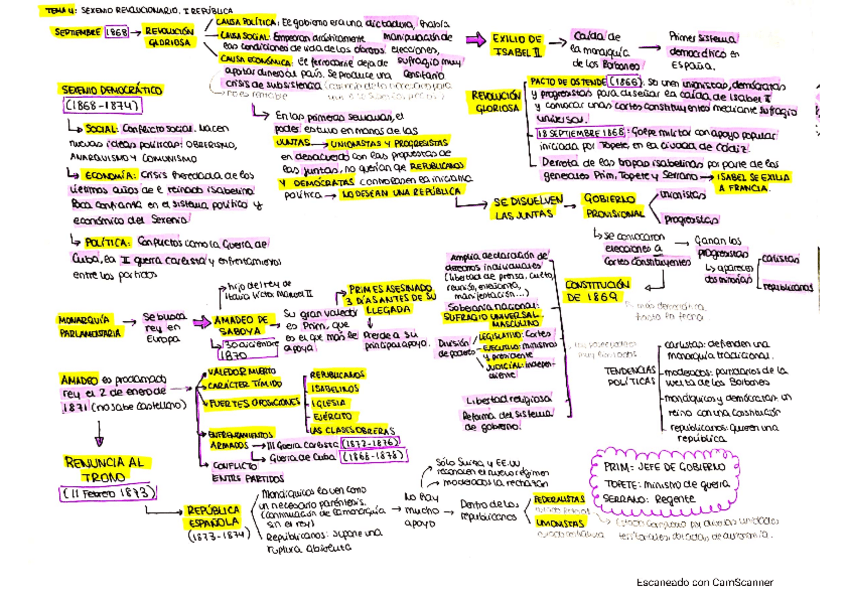 TEMA 4: SEXENIO REVOLUCIONARIO, I REPÚBLICA
SEPTIEMBRE 1868 → REVOLUCIÓN GLORIOSA
CAUSA POLÍTICA: El gobierno era una dictadura, (había manipulación de elecciones, sufragio muy censitario
CAUSA SOCIAL: Empeoran drásticamente las condiciones de vida de los obreros
CAUSA ECONÓMICA: el ferrocarril deja de aportar dinero al país. Se produce una crisis de subsistencia
no es rentable
EXILIO DE ISABEL II → Caída de la monarquía de los Borbones → Primer sistema democrático en España.
SEXENIO DEMOCRÁTICO
(1868-1874)
SOCIAL: Conflicto social. Nacen
nuevas ideas políticas: OBRERISMO,
ANARQUISMO Y COMUNISMO
ECONOMÍA: Crisis heredada de los
últimos años de el reinado isabelino
Poca confianza en el sistema político y
económico del Sexenio
POLÍTICA: Conflictos como la Guerra de
Cuba, la I guerra carlista y enfrentamientos
entre los partidos
En las primeras semanas, el
poder estuvo en manos de las
JUNTAS → UNIONISTAS Y PROGRESISTAS
en desacuerdo con las propuestas de
las juntas, no querían que REPUBLICANOS
Y DEMÓCRATAS controlasen la iniciativa
política → LO DESEAN UNA REPÚBLICA
REVOLUCIÓN GLORIOSA
PACTO DE OSTENDE (1866). Se unen unionistas, demócratas
y progresistas para diseñar la caída de Isabel II
y convocar unas cortes constituyentes mediante sufragio
universal.
18 SEPTIEMBRE 1868: Golpe militar con apoyo popular
iniciada por Topete en la ciudad de Cádiz
Derrota de las tropas isabelinas por parte de los
generales Prim, Topete y Serrano → ISABEL SE EXILIA
A FRANCIA.
SE DISUELVEN LAS JUNTAS → GOBIERNO PROVISIONAL
unionistas
progresistas
se convocaron
elecciones a
Cortes constituyentes
Ganan los
progresistas
aparecen
dos minorías
carlistas
republicanos
CONSTITUCIÓN
DE 1869
Amplia declaración de
derechos individuales
(libertad de prensa, culto,
reunión, enseñanza,
manifestación...)
Soberanía nacional:
SUFRAGIO UNIVERSAL
MASCULINO
División de poderes
LEGISLATIVO: Cortes
EJECUTIVO: ministros
y presidente
JUDICIAL: indepen-
diente
Libertad religiosa
Reforma del sistema
de gobierno.
TENDENCIAS
POLÍTICAS
carlistas: defienden una
monarquía tradicional.
moderados: partidarios de la
vuelta de los Borbones
monárquicos y demócratas: un
reino con una constitución
republicanos: quieren una
república
MONARQUÍA
PARLAMENTARIA → Se busca
rey en
Europa
AMADEO DE
SABOYA
hijo del rey de
Italia Víctor Manuel II
30 diciembre
1870
Su gran valedor
es Prim, que
es el que más le
apoya
PRIM ES ASESINADO
3 DÍAS ANTES DE SU
LLEGADA
Pierde a su
principal apoyo.
AMADEO es proclamado
rey el 2 de enero de
1871 (no sabe castellano)
VALEDOR MUERTO
CARÁCTER TÍMIDO
FUERTES OPOSICIONES
REPUBLICANOS
ISABELINOS
IGLESIA
EJÉRCITO
LAS CLASES OBRERAS
ENFRENTAMIENTOS
ARMADOS → III Guerra carlista (1872-1876)
Guerra de Cuba (1868-1878)
CONFLICTO
ENTRE PARTIDOS
RENUNCIA AL
TRONO
(11 Febrero 1873)
REPÚBLICA
ESPAÑOLA
(1873-1874)
Monárquicos la ven como
un necesario paréntesis
(continuación de la monarquía
sin el rey)
Republicanos: supone una
ruptura absoluta
No hay
mucho
apoyo
Sólo Suiza y EE.UU
reconocen el nuevo régimen
moderados la rechazan
Dentro de los
republicanos
FEDERALISTAS
UNIONISTAS
PRIM: JEFE DE GOBIERNO
TOPETE: ministro de guerra
SERRANO: Regente
Escaneado con CamScanner